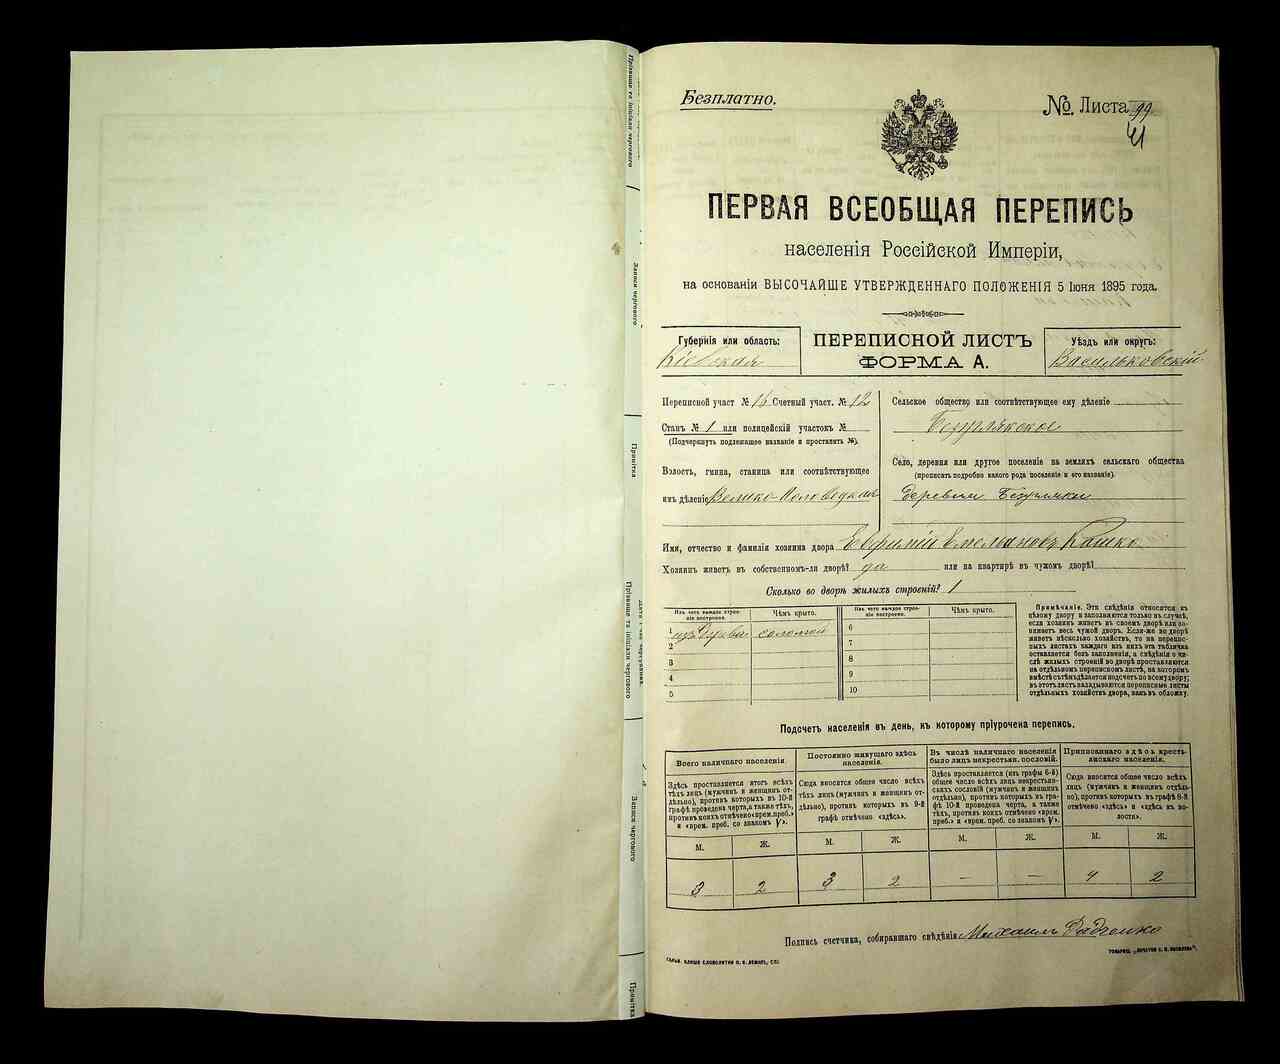 Прізвище та ініціали чергового
Записи чергового
Примітка
Прізвище та ініціали чергового
Записи чергового
Примітка
Безплатно.
№. Листа 99
41
ПЕРВАЯ ВСЕОБЩАЯ ПЕРЕПИСЬ
населенія Россійской Имперіи,
на основаніи ВЫСОЧАЙШЕ УТВЕРЖДЕННАГО ПОЛОЖЕНІЯ 5 Іюня 1895 года.
Губернія или область:
Кіевская
ПЕРЕПИСНОЙ ЛИСТЪ
ФОРМА А.
Уѣздъ или округъ:
Васильковскій
Переписной участ № 16 Счетный участ. № 12
Станъ № 1 или полицейскій участокъ №
(Подчеркнуть подлежащее названіе и проставить №).
Волость, гмина, станица или соотвѣтствующее
имъ дѣленіе Велико-Половецкая
Сельское общество или соотвѣтствующее ему дѣленіе
Безуглякское
Село, деревня или другое поселеніе на земляхъ сельскаго общества
(прописать подробно какого рода поселеніе и его названіе).
деревня Безугляки
Имя, отчество и фамилія хозяина двора Евфимій Емельяновъ Кашко
Хозяинъ живетъ въ собственномъ-ли дворѣ? да или на квартирѣ въ чужомъ дворѣ?
Сколько во дворѣ жилыхъ строеній? 1
Изъ чего каждое строеніе построено.
Чѣмъ крыто.
1 изъ дерева соломой
2
3
4
5
Изъ чего каждое строеніе построено.
Чѣмъ крыто.
6
7
8
9
10
Примѣчаніе. Эти свѣдѣнія относятся къ
цѣлому двору и заполняются только въ случаѣ,
если хозяинъ живетъ въ своемъ дворѣ или занимаетъ
весь чужой дворъ. Если-же во дворѣ
живетъ нѣсколько хозяйствъ, то на переписныхъ
листахъ каждаго изъ нихъ эта табличка
оставляется безъ заполненія, а свѣдѣнія о числѣ
жилыхъ строеній во дворѣ проставляются
на отдѣльномъ переписномъ листѣ, на которомъ
вмѣстѣ съ тѣмъ дѣлается подсчетъ по всему двору;
въ этотъ листъ вкладываются переписные листы
отдѣльныхъ хозяйствъ двора, какъ въ обложку.
Подсчетъ населенія въ день, къ которому пріурочена перепись.
Всего наличнаго населенія.
Здѣсь проставляется итогъ всѣхъ
тѣхъ лицъ (мужчинъ и женщинъ отдѣльно),
противъ которыхъ въ 10-й
графѣ проведена черта, а также тѣхъ,
противъ коихъ отмѣчено «врем. преб.»
и «врем. преб. со знакомъ V».
М. Ж.
3 2
Постоянно живущаго здѣсь
населенія.
Сюда вносится общее число всѣхъ
тѣхъ лицъ (мужчинъ и женщинъ отдѣльно),
противъ которыхъ въ 9-й
графѣ отмѣчено «здѣсь».
М. Ж.
3 2
Въ числѣ наличнаго населенія
было лицъ некрестьян. сословій.
Здѣсь проставляется (изъ графы 6-й)
общее число всѣхъ лицъ некрестьянскихъ
сословій (мужчинъ и женщинъ
отдѣльно), противъ которыхъ въ графѣ
10-й проведена черта, а также
тѣхъ, противъ коихъ отмѣчено «врем.
преб.» и «врем. преб. со знакомъ V».
М. Ж.
— —
Приписаннаго здѣсь крестьянскаго
населенія.
Сюда вносится общее число всѣхъ
лицъ, (мужчинъ и женщинъ отдѣльно),
противъ которыхъ въ графѣ 8-й
отмѣчено «здѣсь» и «здѣсь въ волости».
М. Ж.
4 2
Подпись счетчика, собиравшаго свѣдѣнія Михаилъ Радченко